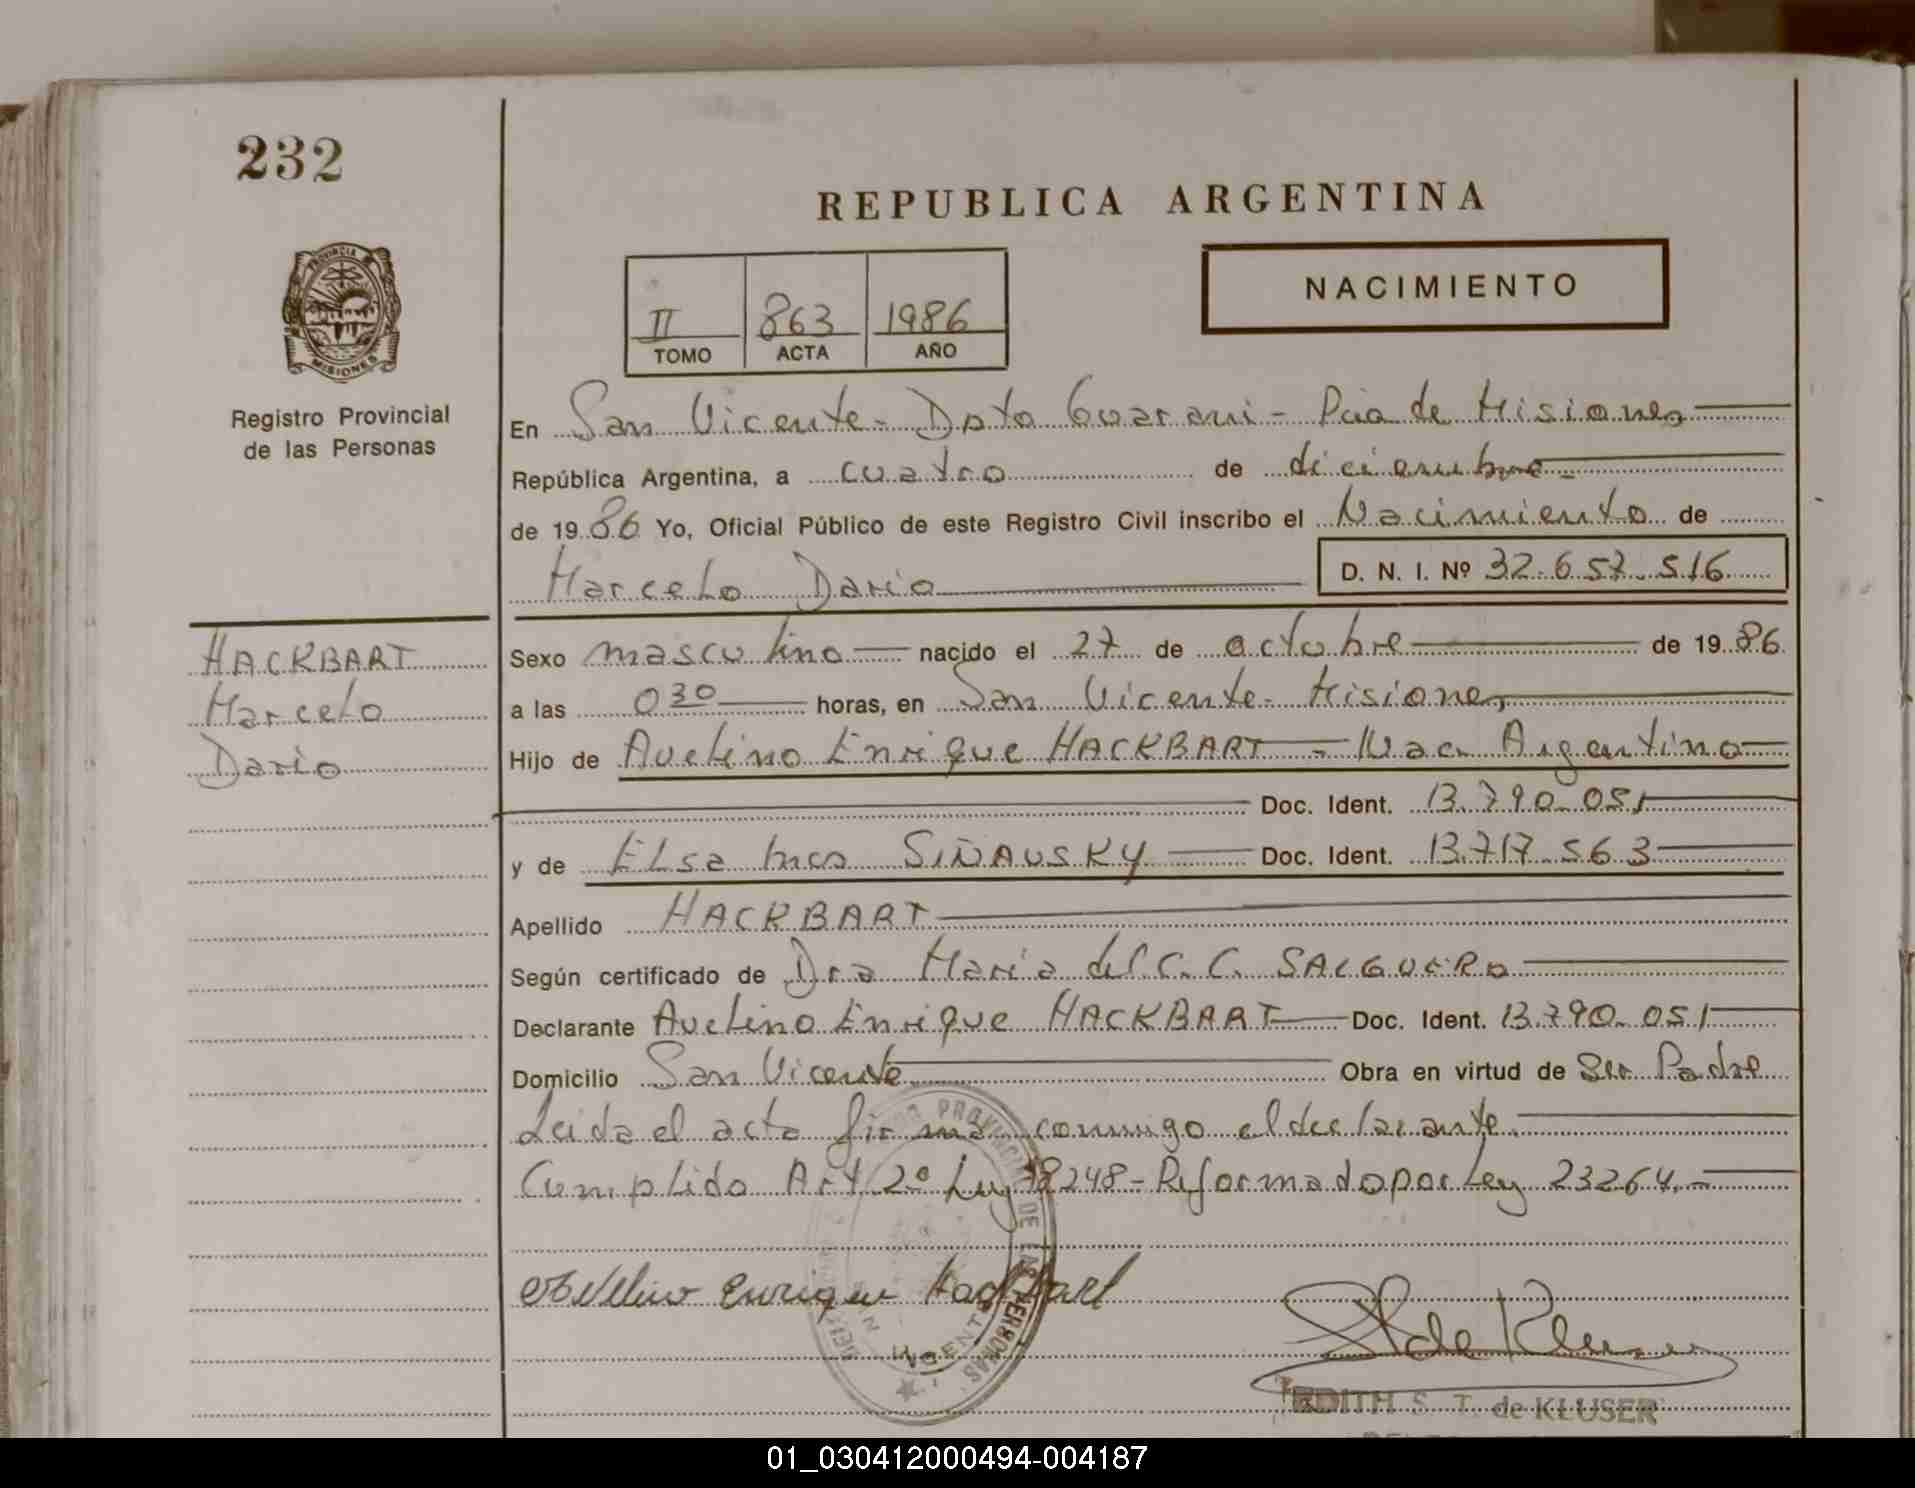 232
REPUBLICA ARGENTINA
PROVINCIA
MISIONES
Registro Provincial
de las Personas
II 863 1986
TOMO ACTA AÑO
NACIMIENTO
En San Vicente - Dpto Guarani - Pcia de Misiones
República Argentina, a cuatro de diciembre
de 1986 Yo, Oficial Público de este Registro Civil inscribo el Nacimiento de
Marcelo Dario D. N. I. Nº 32.657.516
HACKBART
Marcelo
Dario
Sexo masculino nacido el 27 de octubre de 1986
a las 030 horas, en San Vicente - Misiones
Hijo de Avelino Enrique HACKBART - Nac. Argentino
Doc. Ident. 13.790.051
y de Elsa Ines SIÑAUSKY Doc. Ident. 13.717.563
Apellido HACKBART
Según certificado de Dra Maria del C. C. SALGUERO
Declarante Avelino Enrique HACKBART Doc. Ident. 13.790.051
Domicilio San Vicente Obra en virtud de Ser Padre
Leida el acta firma conmigo el declarante.
Cumplido Art 2º Ley 18248 - Reformado por Ley 23264.-
PROVINCIAL DE LAS PERSONAS
SAN VICENTE
Avellino Enrique Hackbart
EDITH S. T. de KLUSER
01_030412000494-004187